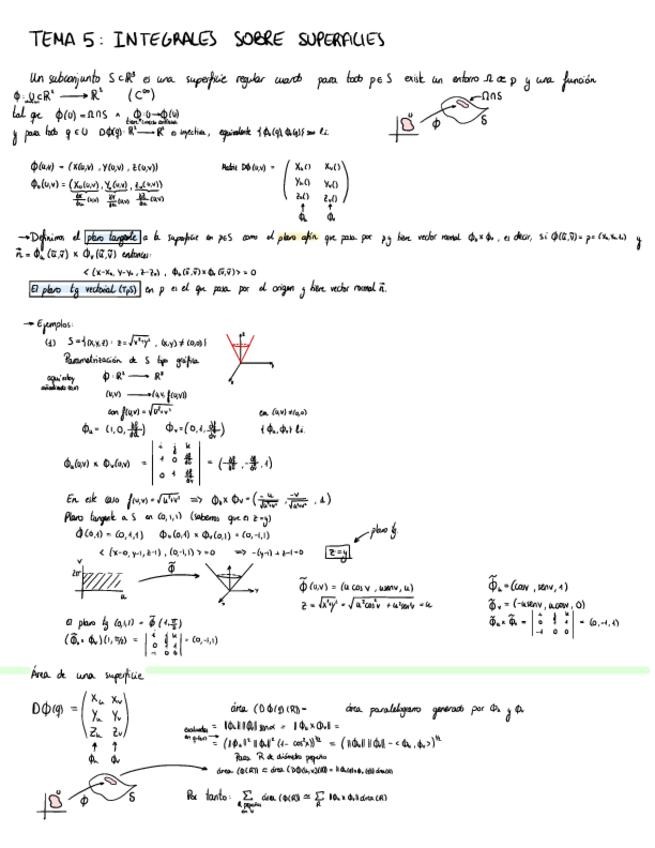 TEMA 5: INTEGRALES SOBRE SUPERFICIES
Un subconjunto S⊂R³ es una superficie regular cuando para todo p∈S existe un entorno Ω de p y una función
Φ: U⊂R² → R³ (C^∞)
tal que Φ(U) = Ω∩S ∧ Φ: U→Φ(U)
y para todo q∈U DΦ(q): R² → R³ es inyectiva, equivalente {Φu(q), Φv(q)} son l.i.
Ω∩S
Φ S
Φ(u,v) = (x(u,v), y(u,v), z(u,v))
Φu(u,v) = (xu(u,v), yu(u,v), zu(u,v))
Matriz DΦ(u,v) = ( xu() xv()
yu() yv()
zu() zv() )
Φu Φv
→ Definimos el plano tangente a la superficie en p∈S como el plano afín que pasa por p y tiene vector normal Φu × Φv, es decir, si Φ(ū,v̄) = p = (x₀,y₀,z₀) y
n⃗ = Φu(ū,v̄) × Φv(ū,v̄) entonces:
< (x-x₀, y-y₀, z-z₀), Φu(ū,v̄) × Φv(ū,v̄) > = 0
El plano tg vectorial (TpS) en p es el que pasa por el origen y tiene vector normal n⃗.
→ Ejemplos:
(1) S = {(x,y,z): z = √x²+y², (x,y) ≠ (0,0)}
Parametrización de S tipo gráfica
Φ: R² → R³
(u,v) → (u,v, f(u,v))
con f(u,v) = √u²+v² con (u,v) ≠ (0,0)
Φu = (1, 0, ∂f/∂u) Φv = (0, 1, ∂f/∂v) {Φu, Φv} l.i.
Φu(u,v) × Φv(u,v) = | i j k
1 0 ∂f/∂u
0 1 ∂f/∂v | = (-∂f/∂u, -∂f/∂v, 1)
En este caso f(u,v) = √u²+v² ⇒ Φu × Φv = (-u/√u²+v², -v/√u²+v², 1)
Plano tangente a S en (0,1,1) (sabemos que es z=y)
Φ(0,1) = (0,1,1) Φu(0,1) × Φv(0,1) = (0,-1,1)
< (x-0, y-1, z-1), (0,-1,1) > = 0 ⇒ -(y-1) + z-1 = 0 z=y
plano tg
v 2π u Φ̃ y
Φ̃(u,v) = (u cos v, u sen v, u)
z = √x²+y² = √u²cos²v + u²sen²v = u
Φ̃u = (cos v, sen v, 1)
Φ̃v = (-u sen v, u cos v, 0)
Φ̃u × Φ̃v = | i j k
0 1 1
-1 0 0 | = (0,-1,1)
El plano tg (0,1,1) = Φ̃(1, π/2)
(Φ̃u × Φ̃v)(1, π/2) = | i j k
0 1 1
-1 0 0 | = (0,-1,1)
Área de una superficie
DΦ(q) = ( xu xv
yu yv
zu zv )
Φu Φv
área (DΦ(q)(R)) = área paralelogramo generado por Φu y Φv
= ||Φu|| ||Φv|| sen α = ||Φu × Φv|| =
= (||Φu||² ||Φv||² (1 - cos²α))^1/2 = (||Φu|| ||Φv|| - <Φu, Φv>)^1/2
Para R de diámetro pequeño
Φ S
Por tanto: Σ área (Φ(R)) ≃ Σ ||Φu × Φv|| área (R)